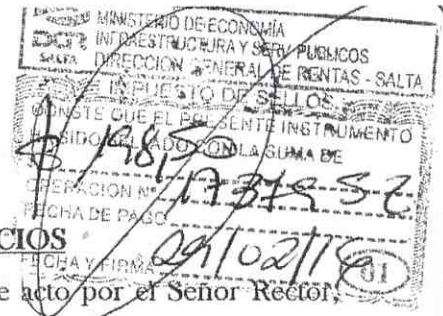 MINISTERIO DE ECONOMÍA
DGR INFRAESTRUCTURA Y SERV PUBLICOS
SALTA DIRECCION GENERAL DE RENTAS - SALTA
IMPUESTO DE SELLOS
CONSTE QUE EL PRESENTE INSTRUMENTO
HA SIDO SELLADO CON LA SUMA DE
$ 198,50
OPERACION Nº
FECHA DE PAGO
CIOS
FECHA Y FIRMA 29/02/16 01
e acto por el Señor Rector,